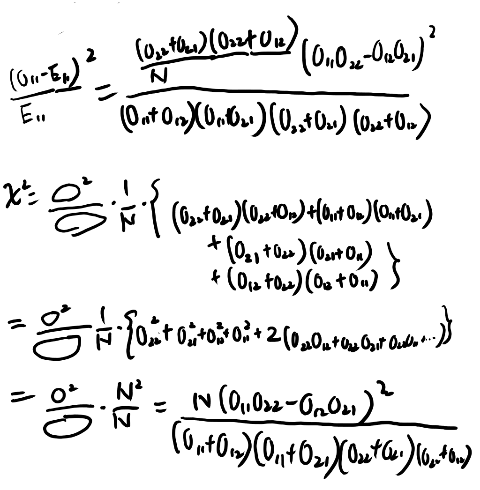 (O₁₁-E₁₁)²/E₁₁ = (O₂₂+O₂₁)(O₂₂+O₁₂)/N (O₁₁O₂₂-O₁₂O₂₁)² / (O₁₁+O₁₂)(O₁₁+O₂₁)(O₂₂+O₂₁)(O₂₂+O₁₂)
χ² = O²/O · 1/N · {(O₂₂+O₂₁)(O₂₂+O₁₂)+(O₁₁+O₁₂)(O₁₁+O₂₁)
+(O₂₁+O₂₂)(O₂₁+O₁₁)
+(O₁₂+O₂₂)(O₁₂+O₁₁)}
= O²/O 1/N · {O₂₂²+O₂₁²+O₁₂²+O₁₁²+2(O₂₂O₁₂+O₂₂O₂₁+...)}
= O²/O · N²/N = N(O₁₁O₂₂-O₁₂O₂₁)² / (O₁₁+O₁₂)(O₁₁+O₂₁)(O₂₂+O₂₁)(O₂₂+O₁₂)